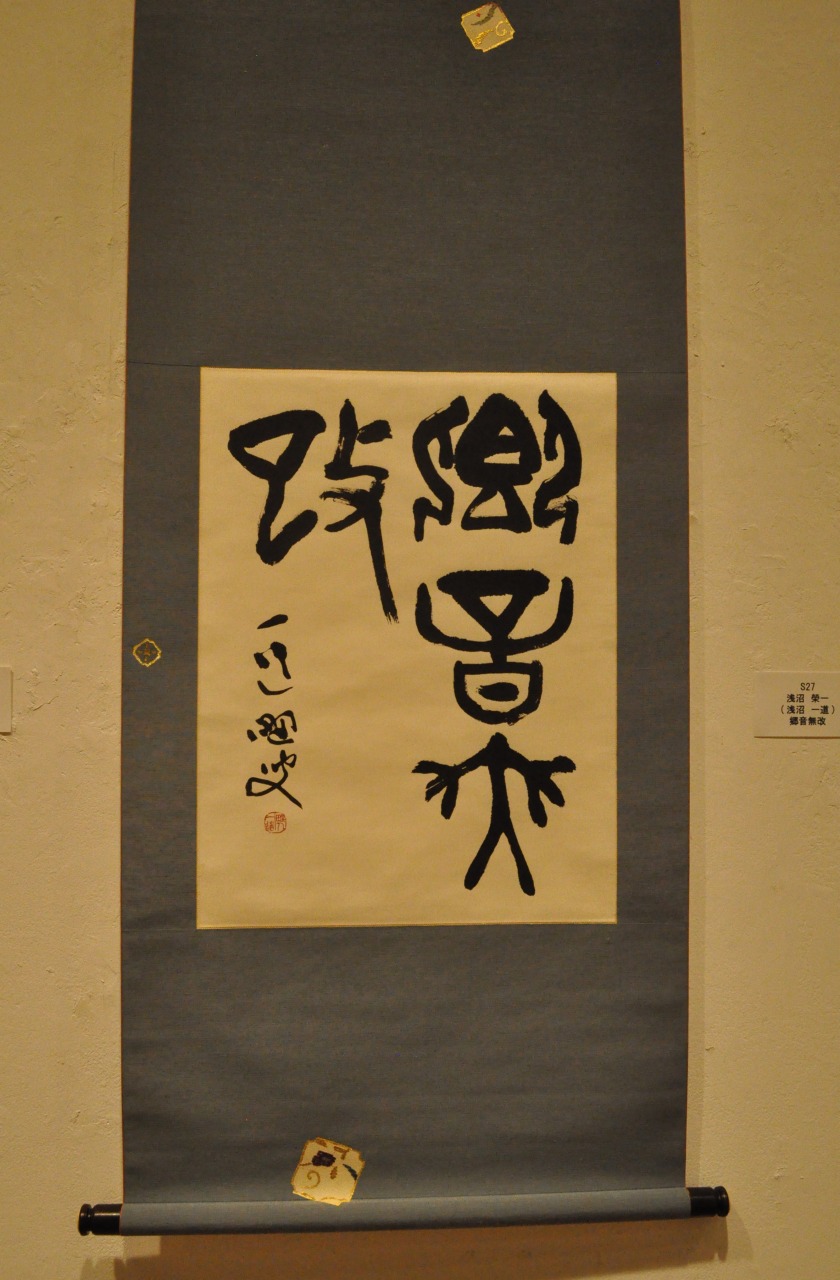 郷音無
改
一道
S27
浅沼 榮一
(浅沼 一道)
郷音無改